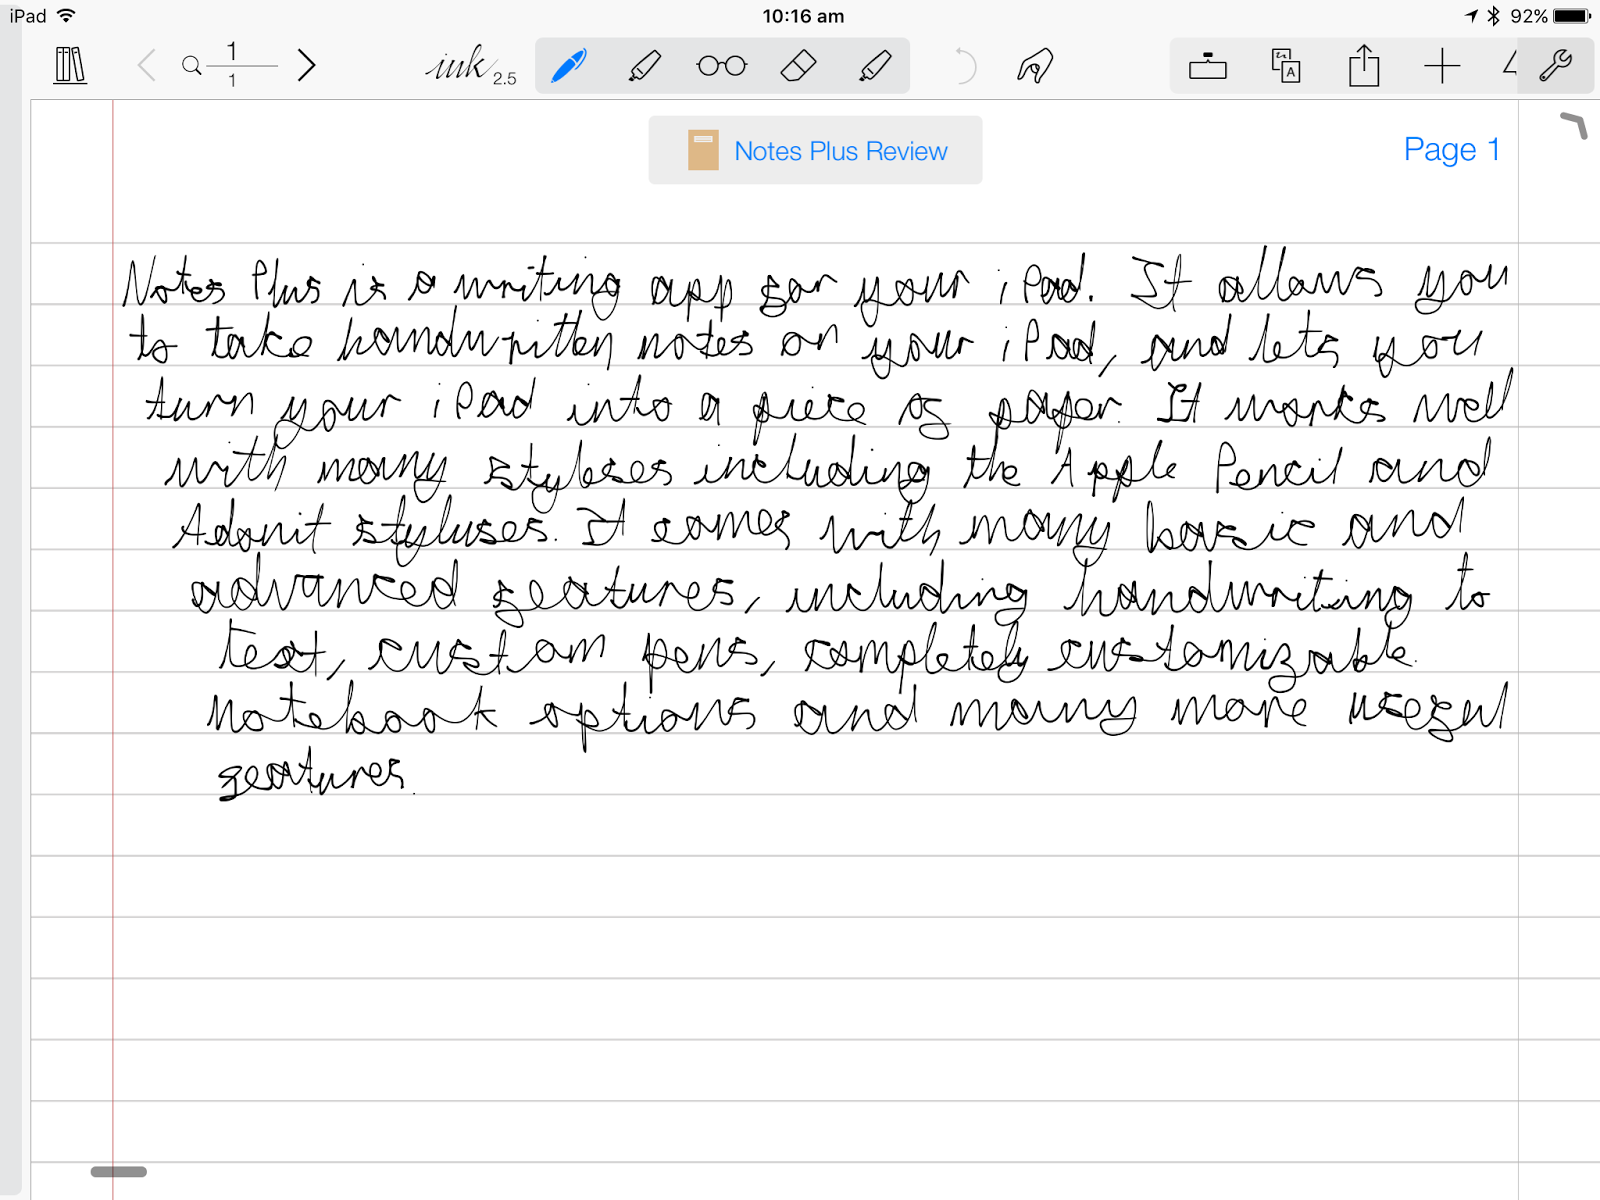 iPad 10:16 am 92%
1
1
ink 2.5
A
Notes Plus Review
Page 1
Notes Plus is a writing app for your iPad. It allows you
to take handwritten notes on your iPad, and lets you
turn your iPad into a piece of paper. It works well
with many styluses including the Apple Pencil and
Adonit styluses. It comes with many basic and
advanced features, including handwriting to
text, custom pens, completely customizable.
notebook options and many more useful
features.